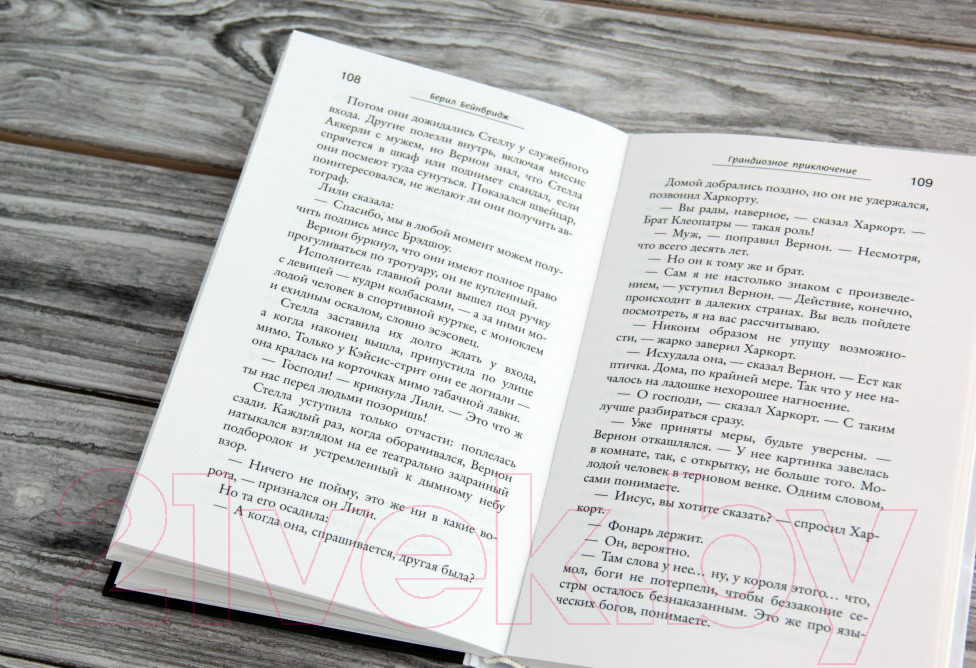 108
Берил Бейнбридж
Потом они дожидались Стеллу у служебного
входа. Другие полезли внутрь, включая миссис
Аккерли с мужем, но Вернон знал, что Стелла
спрячется в шкаф или поднимет скандал, если
они посмеют туда сунуться. Показался швейцар,
поинтересовался, не желают ли они получить ав-
тограф.
Лили сказала:
— Спасибо, мы в любой момент можем полу-
чить подпись мисс Брэдшоу.
Вернон буркнул, что они имеют полное право
прогуливаться по тротуару, он не купленный.
Исполнитель главной роли вышел под ручку
с девицей — кудри колбасками, — а за ними мо-
лодой человек в спортивной куртке, с моноклем
и ехидным оскалом, словно эсэсовец.
Стелла заставила их долго ждать у входа,
а когда наконец вышла, припустила по улице
мимо. Только у Кэйсис-стрит они ее догнали —
она кралась на корточках мимо табачной лавки.
— Господи! — крикнула Лили. — Это что ж
ты нас перед людьми позоришь!
Стелла уступила только отчасти: поплелась
сзади. Каждый раз, когда оборачивался, Вернон
натыкался взглядом на ее театрально задранный
подбородок и устремленный к дымному небу
взор.
— Ничего не пойму, это же ни в какие во-
рота, — признался он Лили.
Но та его осадила:
— А когда она, спрашивается, другая была?
грандиозное приключение
109
Домой добрались поздно, но он не удержался,
позвонил Харкорту.
— Вы рады, наверное, — сказал Харкорт. —
Брат Клеопатры — такая роль!
— Муж, — поправил Вернон. — Несмотря,
что всего десять лет.
— Но он к тому же и брат.
— Сам я не настолько знаком с произведе-
нием, — уступил Вернон. — Действие, конечно,
происходит в далеких странах. Вы ведь пойдете
посмотреть, я на вас рассчитываю.
— Никоим образом не упущу возможно-
сти, — жарко заверил Харкорт.
— Исхудала она, — сказал Вернон. — Ест как
птичка. Дома, по крайней мере. Так что у нее на-
чалось на ладошке нехорошее нагноение.
— О господи, — сказал Харкорт. — С таким
лучше разбираться сразу.
— Уже приняты меры, будьте уверены. —
Вернон откашлялся. — У нее картинка завелась
в комнате, так, с открытку, не больше того. Мо-
лодой человек в терновом венке. Одним словом,
сами понимаете.
— Иисус, вы хотите сказать? — спросил Хар-
корт.
— Фонарь держит.
— Он, вероятно.
— Там слова у нее... ну, у короля этого... что,
мол, боги не потерпели, чтобы беззаконие се-
стры осталось безнаказанным. Это же про язы-
ческих богов, понимаете.
21vek.by